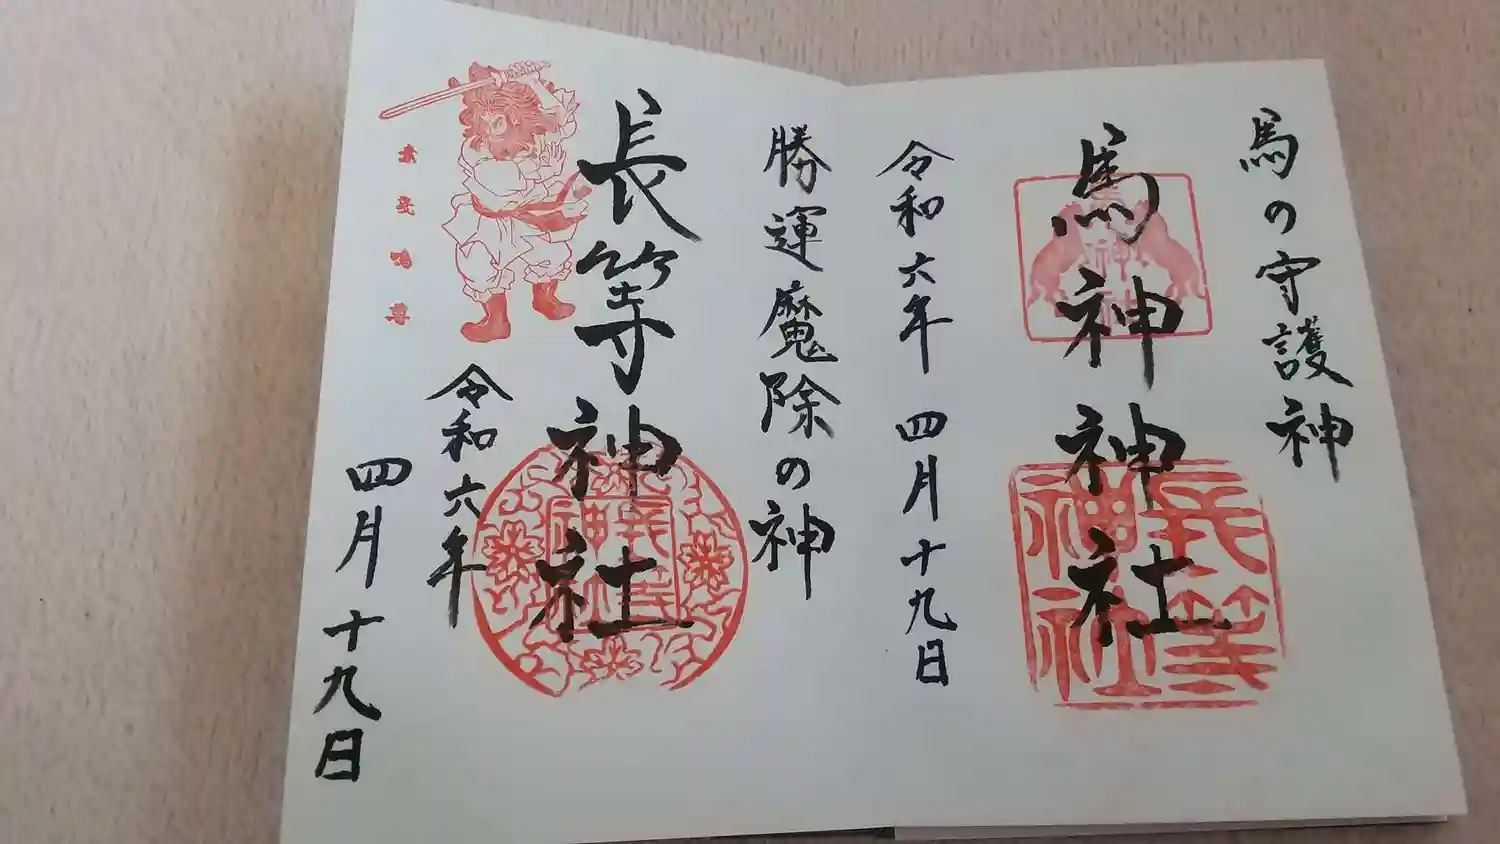 馬の守護神
馬神神社
令和六年 四月十九日
勝運魔除の神
長等神社
令和六年
四月十九日
長等神社
長等神社